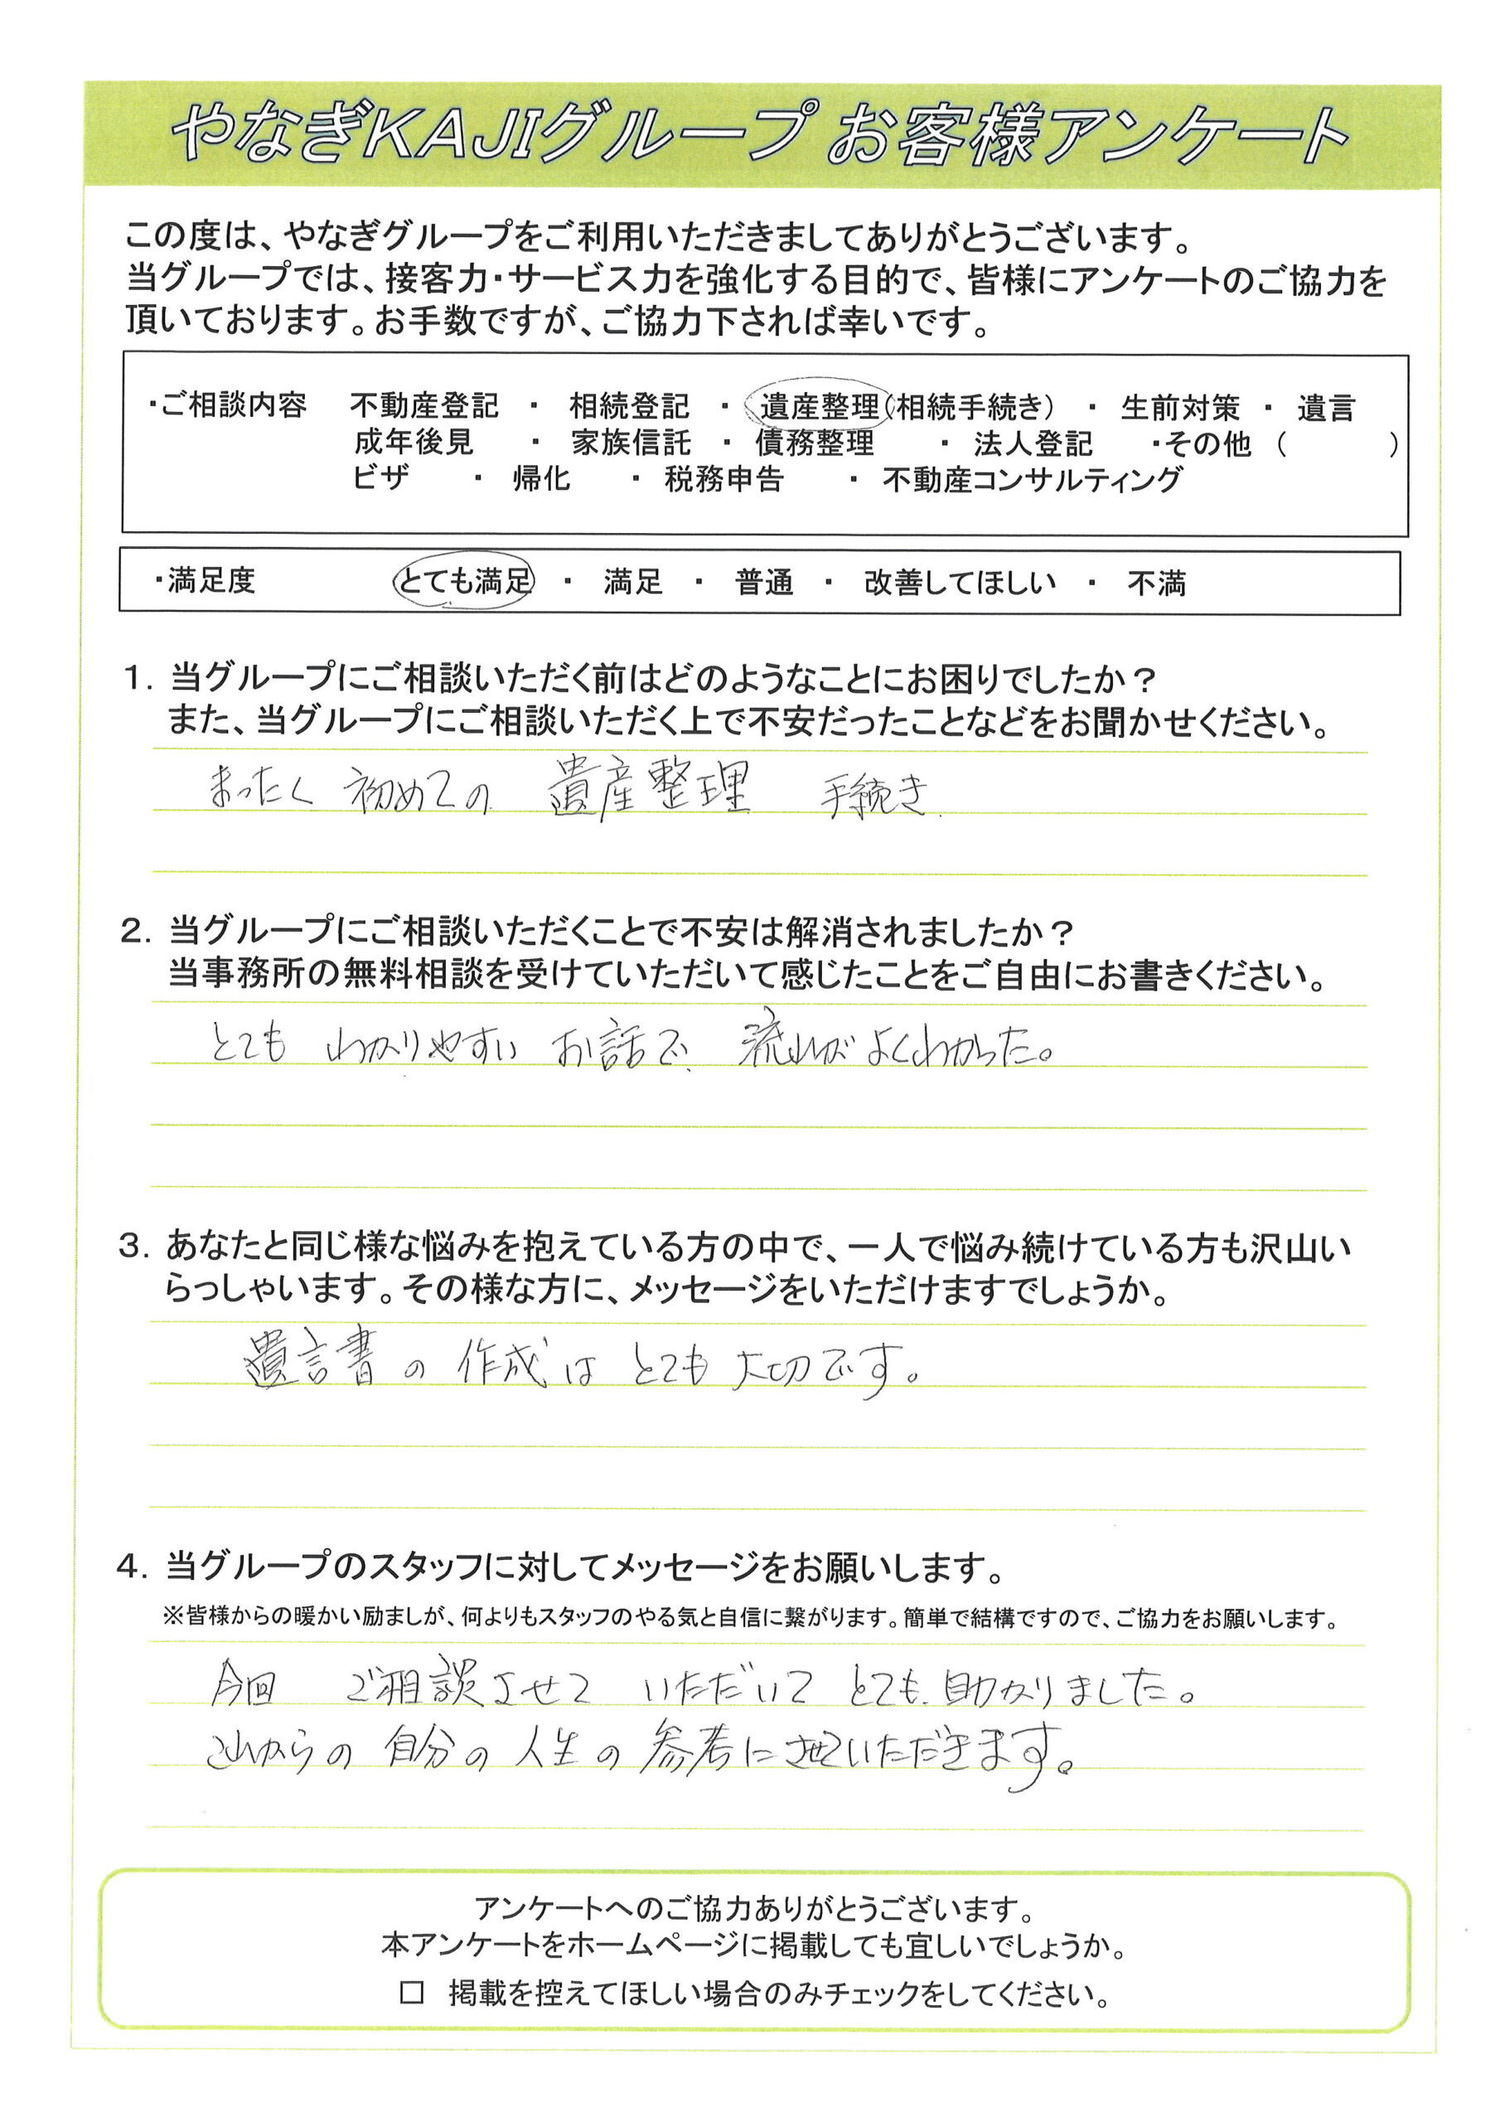 やなぎKAJIグループ お客様アンケート
この度は、やなぎグループをご利用いただきましてありがとうございます。
当グループでは、接客力・サービス力を強化する目的で、皆様にアンケートのご協力を
頂いております。お手数ですが、ご協力下されば幸いです。
・ご相談内容 不動産登記 ・ 相続登記 ・ 遺産整理(相続手続き) ・ 生前対策 ・ 遺言
成年後見 ・ 家族信託 ・ 債務整理 ・ 法人登記 ・その他 ( )
ビザ ・ 帰化 ・ 税務申告 ・ 不動産コンサルティング
・満足度 とても満足 ・ 満足 ・ 普通 ・ 改善してほしい ・ 不満
1. 当グループにご相談いただく前はどのようなことにお困りでしたか？
また、当グループにご相談いただく上で不安だったことなどをお聞かせください。
まったく 初めての 遺産整理 手続き
2. 当グループにご相談いただくことで不安は解消されましたか？
当事務所の無料相談を受けていただいて感じたことをご自由にお書きください。
とても わかりやすい お話で、流れがよくわかった。
3. あなたと同じ様な悩みを抱えている方の中で、一人で悩み続けている方も沢山い
らっしゃいます。その様な方に、メッセージをいただけますでしょうか。
遺言書の作成は とても大切です。
4. 当グループのスタッフに対してメッセージをお願いします。
※皆様からの暖かい励ましが、何よりもスタッフのやる気と自信に繋がります。簡単で結構ですので、ご協力をお願いします。
今回 ご相談させて いただいて とても助かりました。
これからの 自分の 人生の 参考にさせていただきます。
アンケートへのご協力ありがとうございます。
本アンケートをホームページに掲載しても宜しいでしょうか。
□ 掲載を控えてほしい場合のみチェックをしてください。